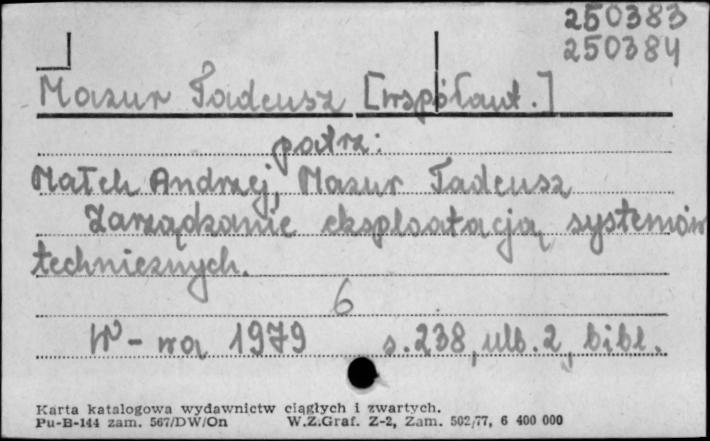 250383
250384
Mazur Tadeusz [współaut.]
patrz:
Małek Andrzej, Mazur Tadeusz
Zarządzanie eksploatacją systemów
technicznych.
6
W-wa 1979 s. 238, ulb. 2, bibl.
Karta katalogowa wydawnictw ciągłych i zwartych.
Pu-B-144 zam. 567/DW/On W.Z.Graf. Z-2, Zam. 502/77, 6 400 000